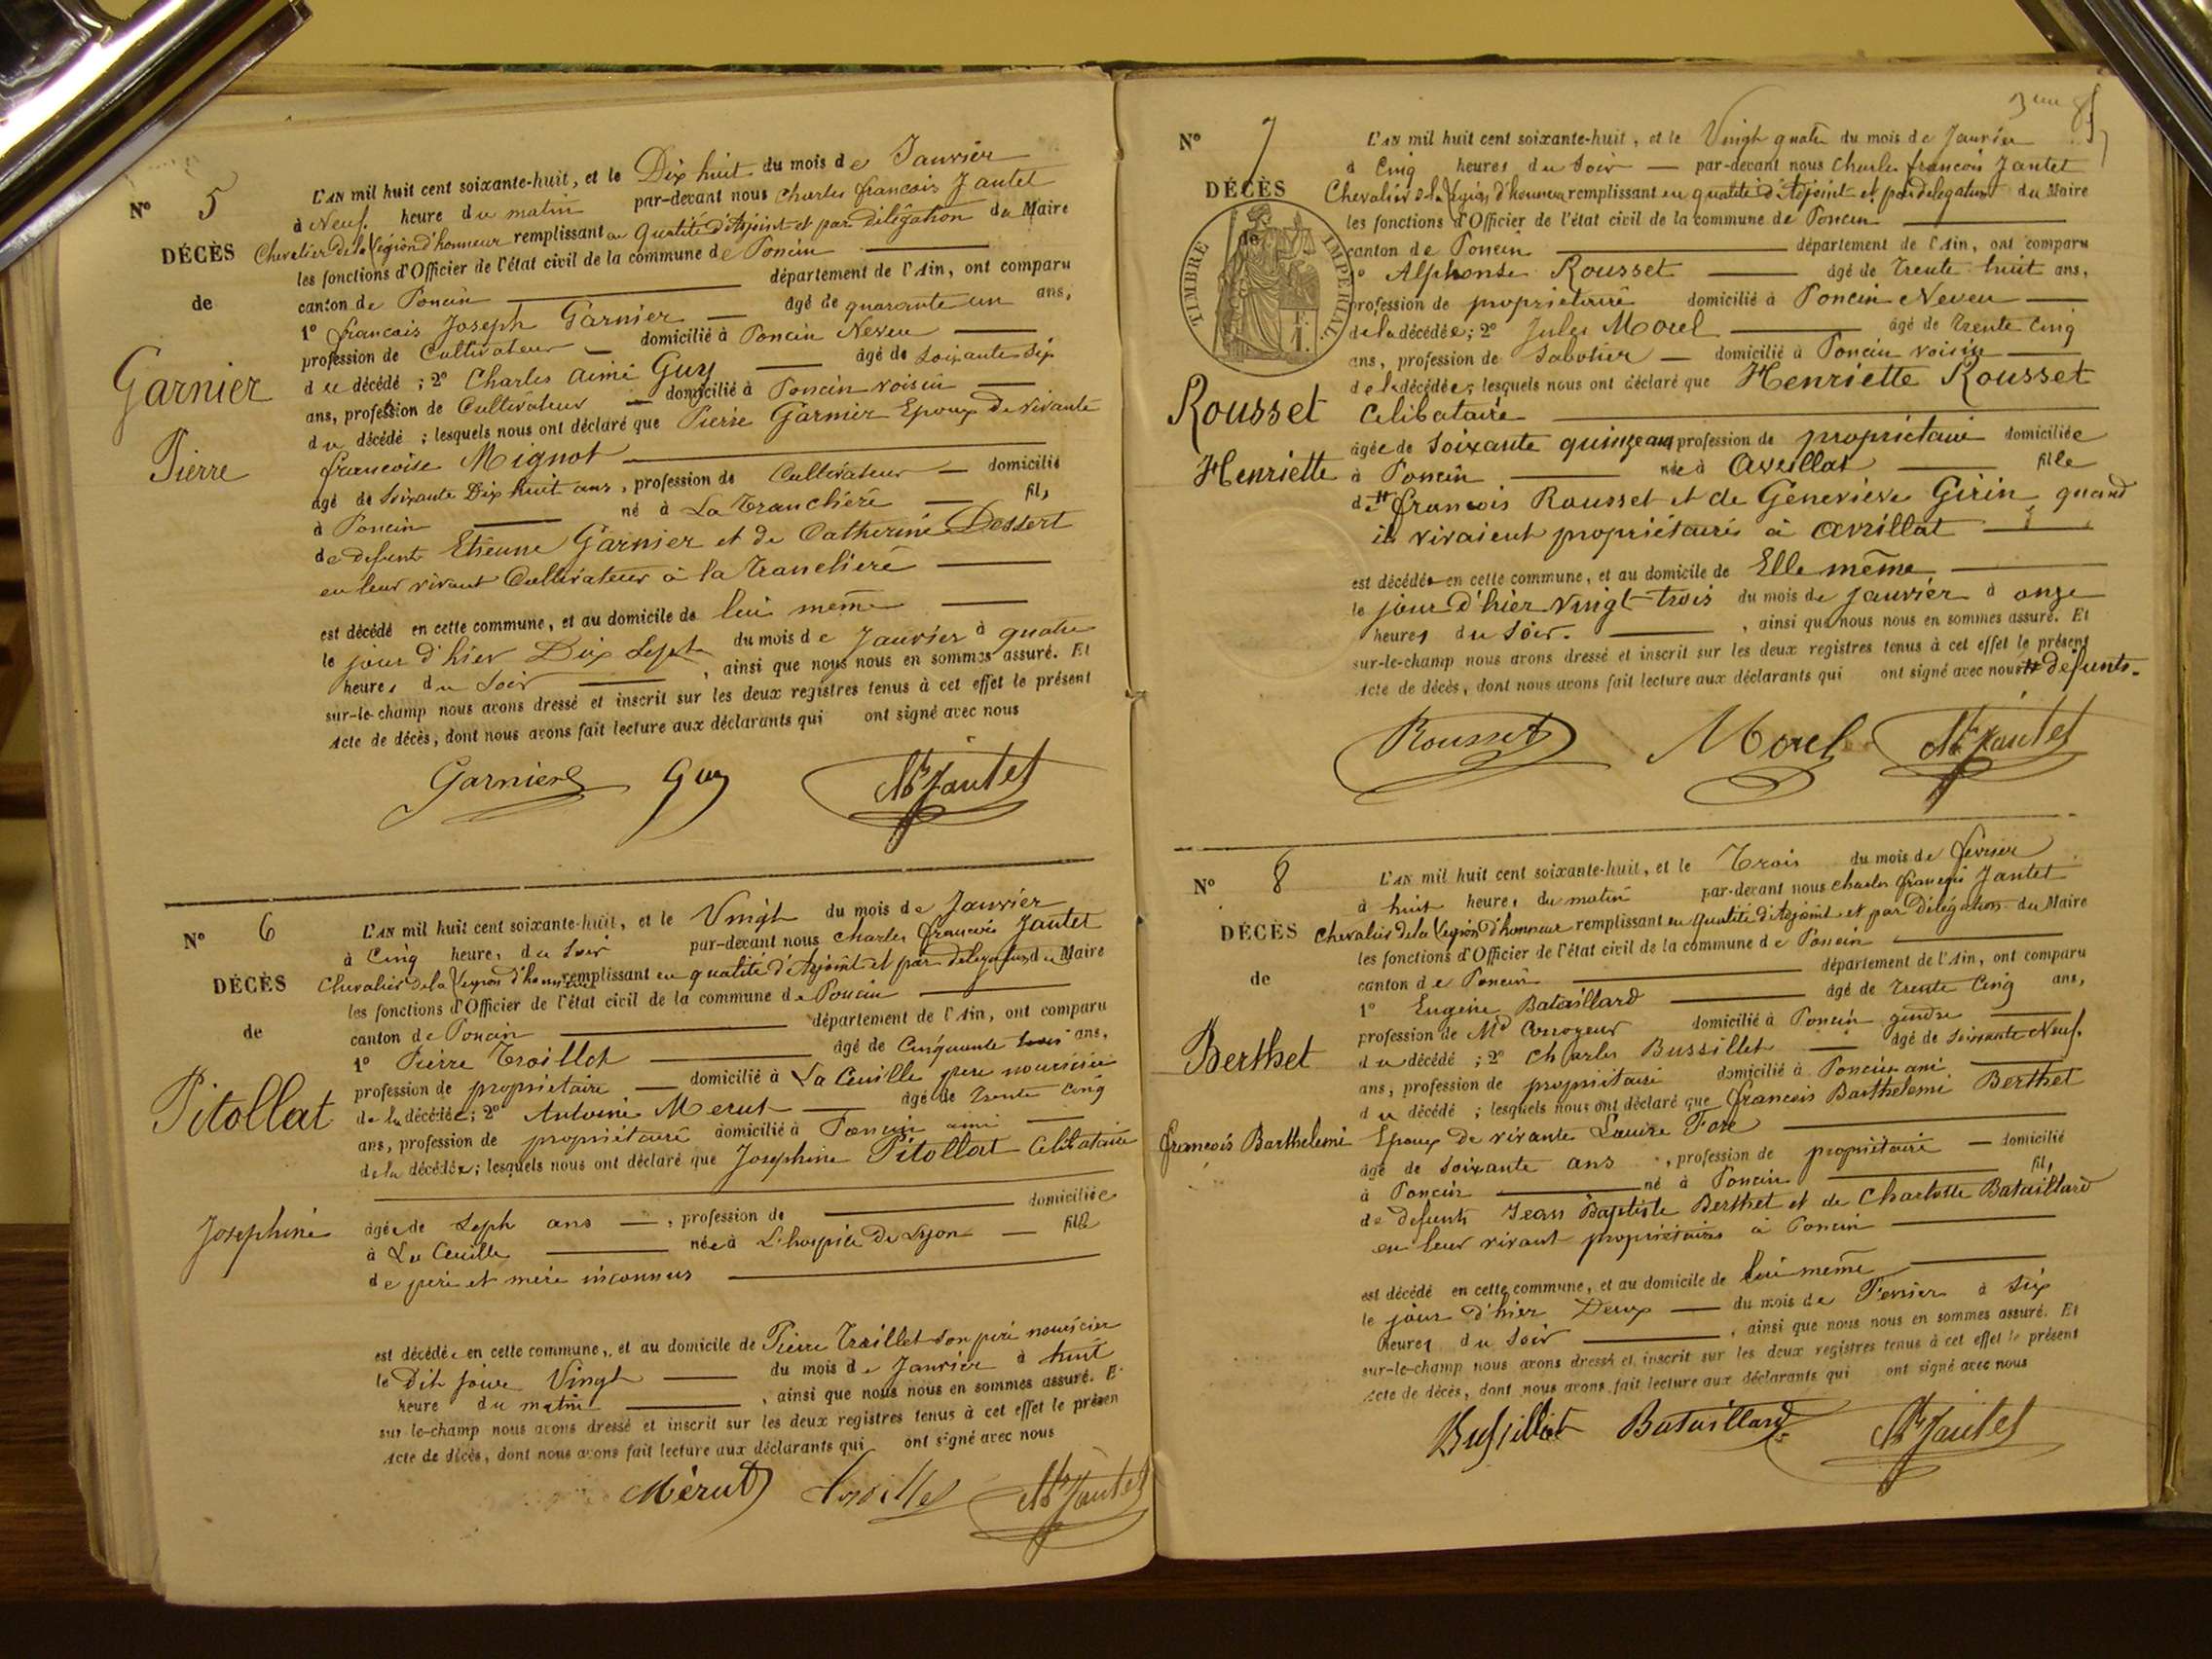 N° 5
DÉCÈS
de
Garnier
Pierre
L'AN mil huit cent soixante-huit, et le Dix huit du mois de Janvier
à Neuf heure du matin par-devant nous Charles francois Jantet
Chevalier de la Légion d'honneur remplissant en qualité d'Adjoint et par délégation du Maire
les fonctions d'Officier de l'état civil de la commune de Poncin
canton de Poncin département de l'Ain, ont comparu
1° francois Joseph Garnier âgé de quarante un ans,
profession de Cultivateur domicilié à Poncin Neveu
du décédé ; 2° Charles Aimé Guy âgé de soixante six
ans, profession de Cultivateur domicilié à Poncin voisin
du décédé ; lesquels nous ont déclaré que Pierre Garnier Epoux de vivante
francoise Mignot
âgé de soixante Dix huit ans, profession de Cultivateur domicilié
à Poncin né à La Tranchère fils
de defunt Etienne Garnier et de Catherine Dessert
en leur vivant Cultivateur à la Tranchère
est décédé en cette commune, et au domicile de lui même
le jour d'hier Dix Sept du mois de Janvier à quatre
heures du soir , ainsi que nous nous en sommes assuré. Et
sur-le-champ nous avons dressé et inscrit sur les deux registres tenus à cet effet le présent
Acte de décès, dont nous avons fait lecture aux déclarants qui ont signé avec nous
Garnier Guy Jantet
N° 6
DÉCÈS
de
Pitollat
Josephine
L'AN mil huit cent soixante-huit, et le Vingt du mois de Janvier
à Cinq heures du soir par-devant nous Charles francois Jantet
Chevalier de la Légion d'honneur remplissant en qualité d'Adjoint et par délégation du Maire
les fonctions d'Officier de l'état civil de la commune de Poncin
canton de Poncin département de l'Ain, ont comparu
1° Pierre Troillet âgé de Cinquante trois ans,
profession de propriétaire domicilié à La Cueille père nouricier
de la décédée; 2° Antoine Merut âgé de trente cinq
ans, profession de propriétaire domicilié à Poncin ami
de la décédée; lesquels nous ont déclaré que Josephine Pitollat Célibataire
âgée de Sept ans , profession de domiciliée
à La Cueille née à L'hospice de Lyon fille
de père et mère inconnus
est décédée en cette commune, et au domicile de Pierre Troillet son père nouricier
le Dit jour Vingt du mois de Janvier à huit
heure du matin , ainsi que nous nous en sommes assuré. E
sur le-champ nous avons dressé et inscrit sur les deux registres tenus à cet effet le présen
Acte de décès, dont nous avons fait lecture aux déclarants qui ont signé avec nous
Mérut Troillet Jantet
N° 7
DÉCÈS
de
TIMBRE IMPERIAL
F. 1.
Rousset
Henriette
L'AN mil huit cent soixante-huit, et le Vingt quatre du mois de Janvier
à Cinq heures du soir par-devant nous Charles francois Jantet
Chevalier de la Légion d'honneur remplissant en qualité d'Adjoint et par délégation du Maire
les fonctions d'Officier de l'état civil de la commune de Poncin
canton de Poncin département de l'Ain, ont comparu
1° Alphonse Rousset âgé de trente huit ans,
profession de propriétaire domicilié à Poncin Neveu
de la décédée; 2° Jules Morel âgé de trente cinq
ans, profession de Sabotier domicilié à Poncin voisin
de la décédée; lesquels nous ont déclaré que Henriette Rousset
Célibataire
âgée de soixante quinze ans profession de propriétaire domiciliée
à Poncin née à Avrillat fille
de francois Rousset et de Geneviève Girin quand
ils vivaient propriétaires à Avrillat
est décédée en cette commune, et au domicile de Elle même
le jour d'hier vingt trois du mois de janvier à onze
heures du soir. , ainsi que nous nous en sommes assuré. Et
sur-le-champ nous avons dressé et inscrit sur les deux registres tenus à cet effet le présent
Acte de décès, dont nous avons fait lecture aux déclarants qui ont signé avec nous # defunts.
Rousset Morel Jantet
N° 8
DÉCÈS
de
Berthet
francois Barthelemi
L'AN mil huit cent soixante-huit, et le Trois du mois de février
à huit heures du matin par-devant nous Charles francois Jantet
Chevalier de la Légion d'honneur remplissant en qualité d'Adjoint et par Délégation du Maire
les fonctions d'Officier de l'état civil de la commune de Poncin
canton de Poncin département de l'Ain, ont comparu
1° Eugène Bataillard âgé de trente cinq ans,
profession de Md Corroyeur domicilié à Poncin gendre
du décédé ; 2° Charles Bussillet âgé de soixante Neuf
ans, profession de propriétaire domicilié à Poncin ami
du décédé ; lesquels nous ont déclaré que francois Barthelemi Berthet
Epoux de vivante Louise Fore
âgé de soixante ans , profession de propriétaire domicilié
à Poncin né à Poncin fils
de defunts Jean Baptiste Berthet et de Charlotte Bataillard
en leur vivant propriétaires à Poncin
est décédé en cette commune, et au domicile de lui même
le jour d'hier Deux du mois de Fevrier à six
heures du soir , ainsi que nous nous en sommes assuré. Et
sur-le-champ nous avons dressé et inscrit sur les deux registres tenus à cet effet le présent
Acte de décès, dont nous avons fait lecture aux déclarants qui ont signé avec nous
Bussillet Bataillard Jantet